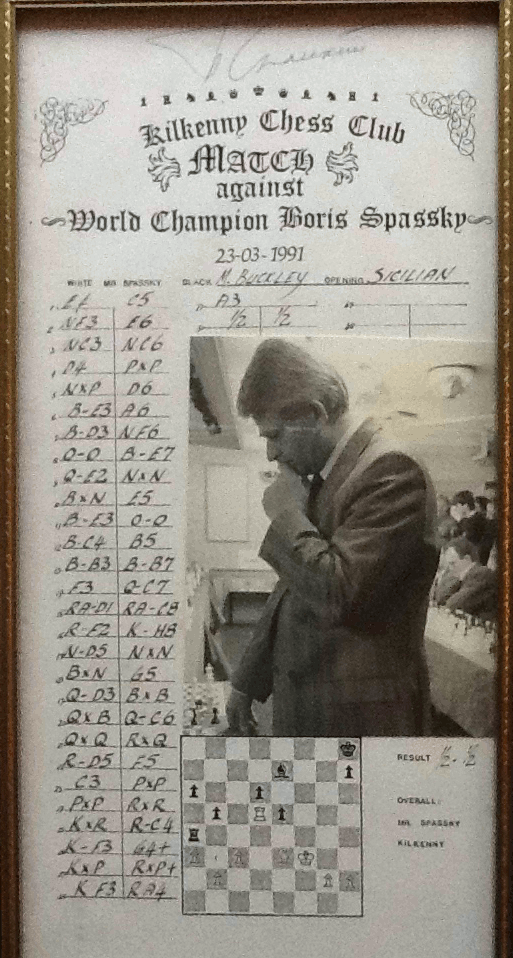 Kilkenny Chess Club
MATCH
against
World Champion Boris Spassky
23-03-1991
WHITE MR SPASSKY BLACK M. BUCKLEY OPENING SICILIAN
E4 C5 A3
NF3 E6 ½ ½
NC3 NC6
D4 PxP
NxP D6
B-E3 A6
B-D3 NF6
O-O B-E7
Q-E2 NxN
BxN E5
B-E3 O-O
B-C4 B5
B-B3 B-B7
F3 Q-C7
RA-D1 RA-C8
R-F2 K-H8
N-D5 NxN
BxN G5
Q-D3 BxB
QxB Q-C6
QxQ RxQ
R-D5 F5
C3 PxP
PxP RxR
KxR R-C4
K-F3 G4+
KxP RxP+
K F3 RA4
RESULT ½-½
OVERALL:
MR SPASSKY
KILKENNY